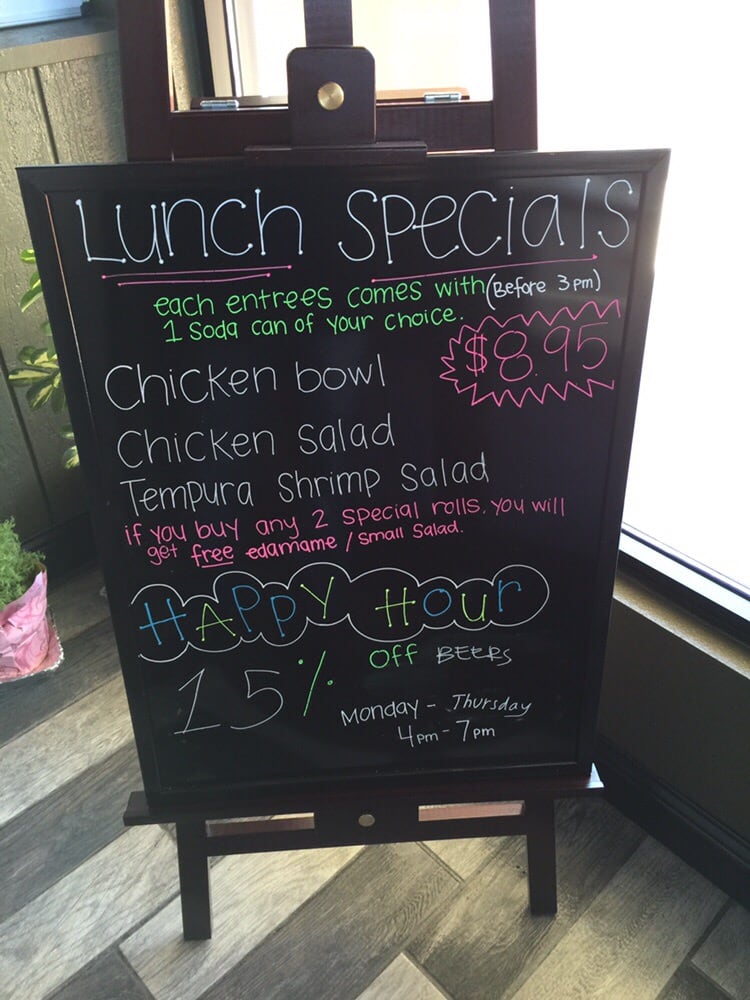 Lunch Specials
each entrees comes with (Before 3pm)
1 Soda can of your choice.
$8.95
Chicken bowl
Chicken Salad
Tempura Shrimp Salad
if you buy any 2 Special rolls, you will
get free edamame / Small Salad.
HAPPY Hour
15% OFF BEERS
Monday - Thursday
4pm - 7pm